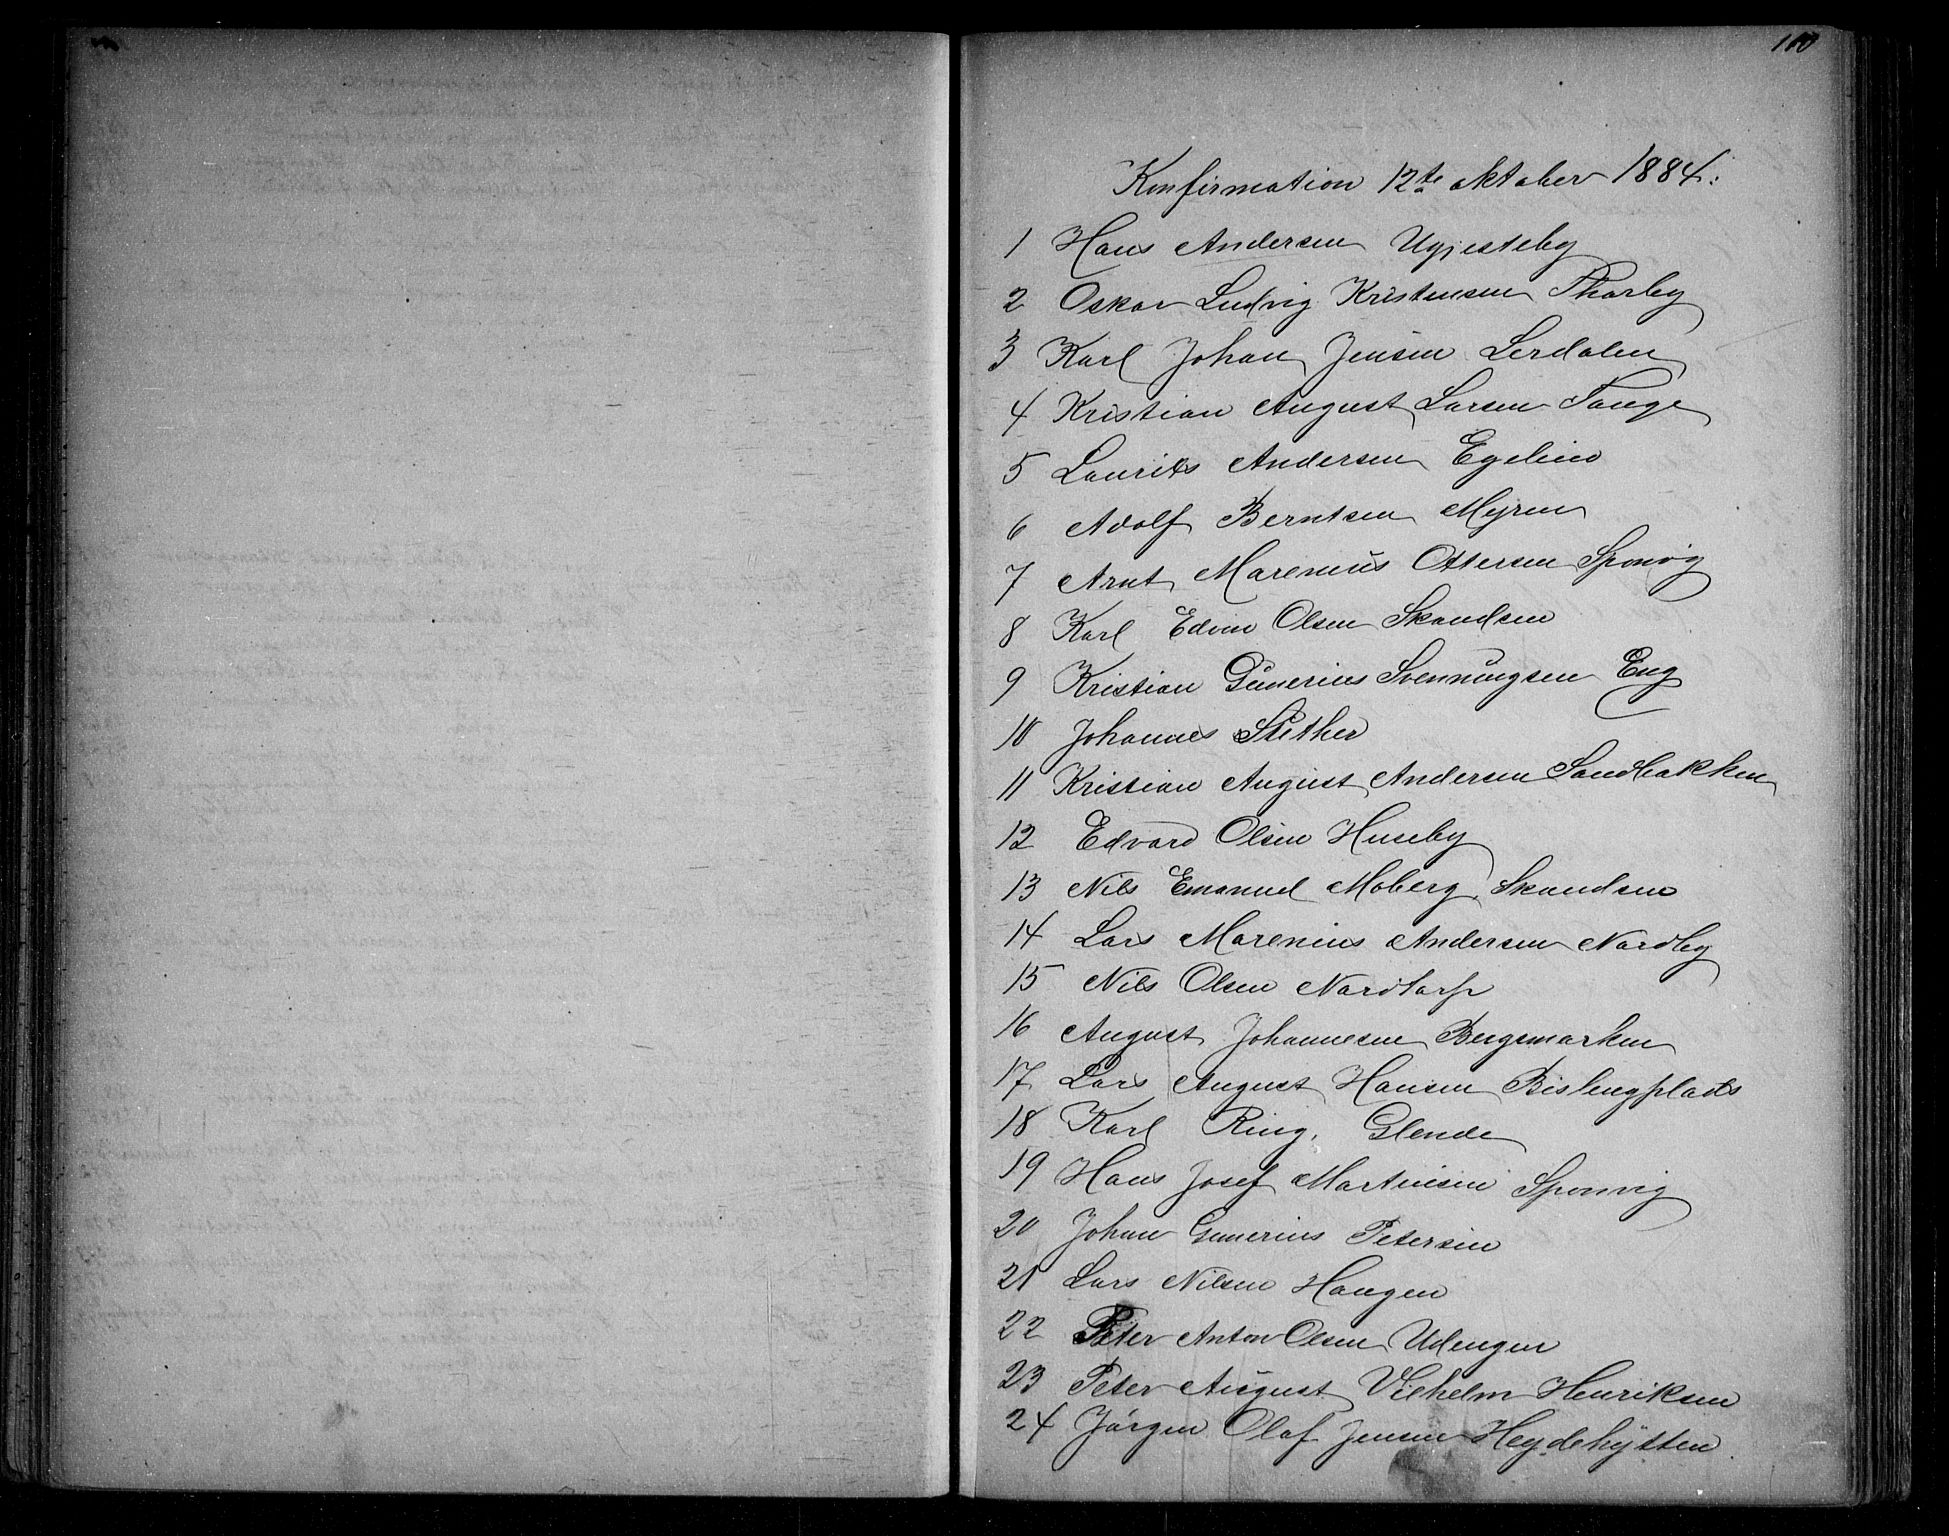 110
Konfirmation 12te oktober 1884.
1 Hans Andersen Ugjesteby
2 Oskar Ludvig Kristensen Thorby
3 Karl Johan Jensen Lerdalen
4 Kristian August Larsen Tange
5 Laurits Andersen Egelund
6 Adolf Berntsen Myren
7 Arnt Marenius Ottersen Sponvig
8 Karl Edvin Olsen Skandsen
9 Kristian Gunerius Svenningsen Eng
10 Johannes Stether
11 Kristian August Andersen Sandbakken
12 Edvard Olsen Huseby
13 Nils Emanuel Moberg, Skandsen
14 Lars Marenius Andersen Nordby
15 Nils Olsen Nordtorp
16 August Johannesen Bergsmarken
17 Lars August Hansen Bislengplads
18 Karl Ring, Glende
19 Hans Josef Martinsen Sponvig
20 Johan Gunerius Petersen
21 Lars Nilsen Haugen
22 Peter Anton Olsen Udengen
23 Peter August Vilhelm Henriksen
24 Jörgen Olaf Jensen Heydehytten.